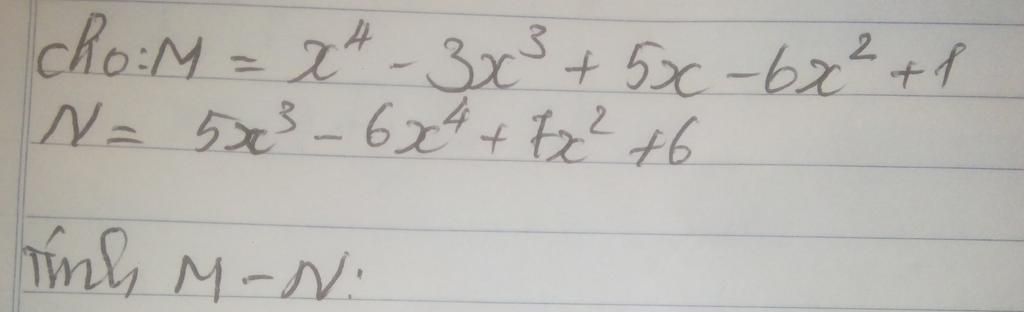 cho: M = x⁴ - 3x³ + 5x - 6x² + 1
N = 5x³ - 6x⁴ + 7x² + 6
Tính M - N: